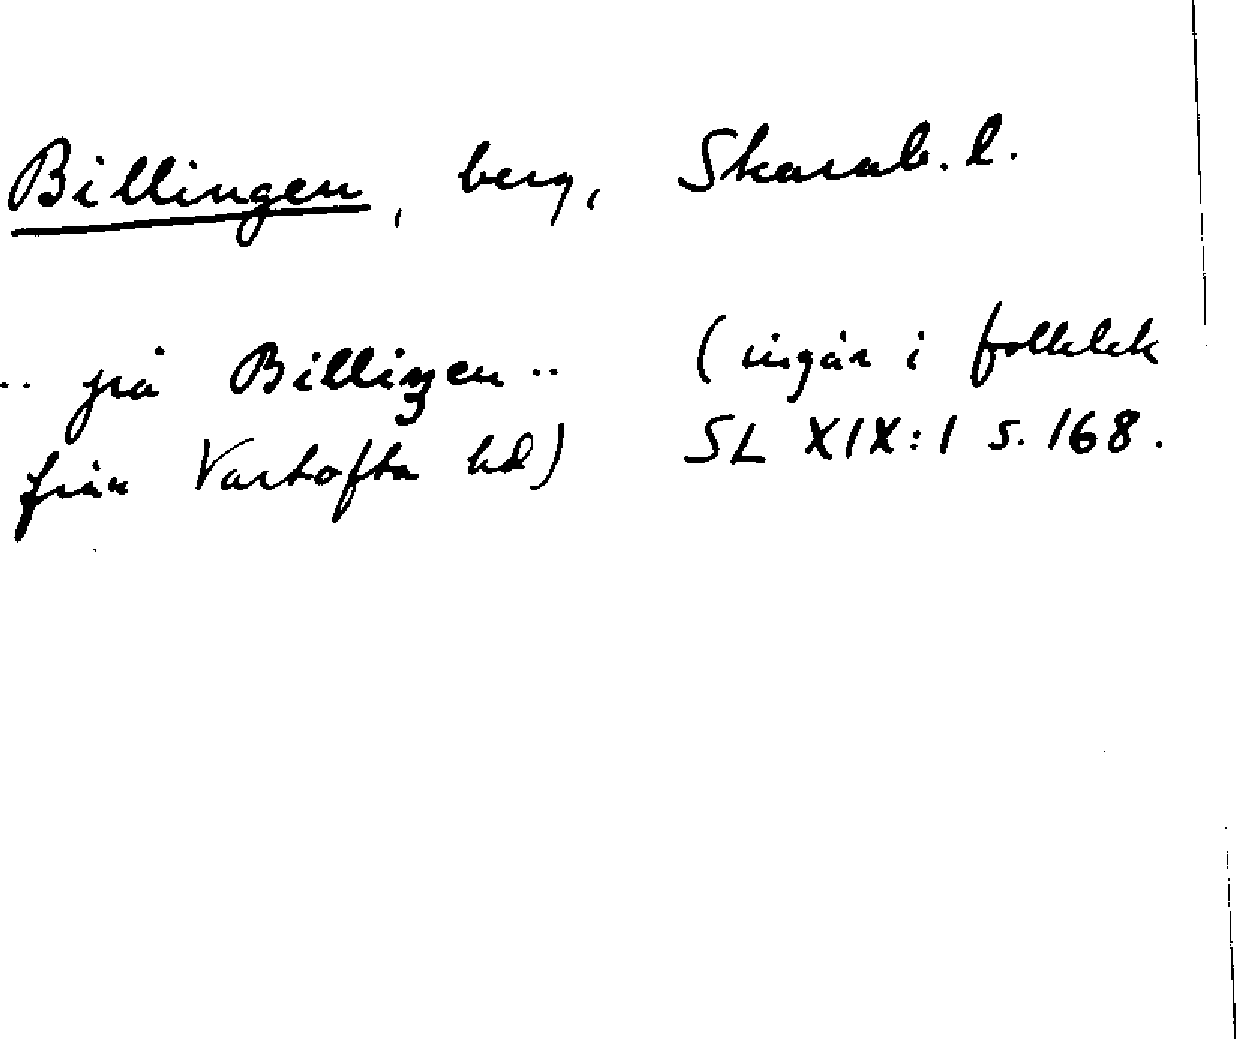 Billingen, berg, Skarab. l.
.. på Billingen .. (ingår i folklek
från Vartofta hd) SL XIX:1 s. 168.